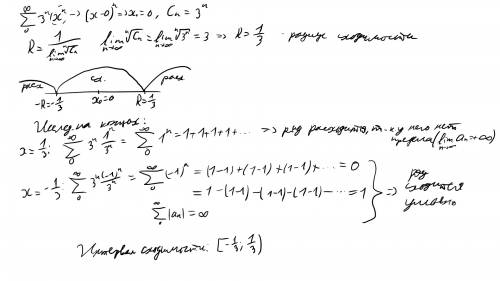 ∑_0^∞ 3^n x^n → (x-0)^n ⇒ x₀=0, Cₙ = 3^n
R = 1/(lim_{n→∞} ⁿ√Cₙ) lim_{n→∞} ⁿ√Cₙ = lim_{n→∞} ⁿ√3^n = 3 ⇒ R = 1/3 - радиус сходимости
расх сх. расх
-R=-1/3 x₀=0 R=1/3
Исслед. на концах:
x = 1/3: ∑_0^∞ 3^n 1^n/3^n = ∑_0^∞ 1^n = 1+1+1+1+... ⇒ ряд расходится, т.к у него нет предела (lim_{n→∞} aₙ → ∞)
x = -1/3: ∑_0^∞ 3^n (-1)^n/3^n = ∑_0^∞ (-1)^n = (1-1)+(1-1)+(1-1)+... = 0
= 1-(1-1)-(1-1)-(1-1)-... = 1 ⇒ ряд сходится условно
∑_0^∞ |aₙ| = ∞
Интервал сходимости: [-1/3; 1/3)